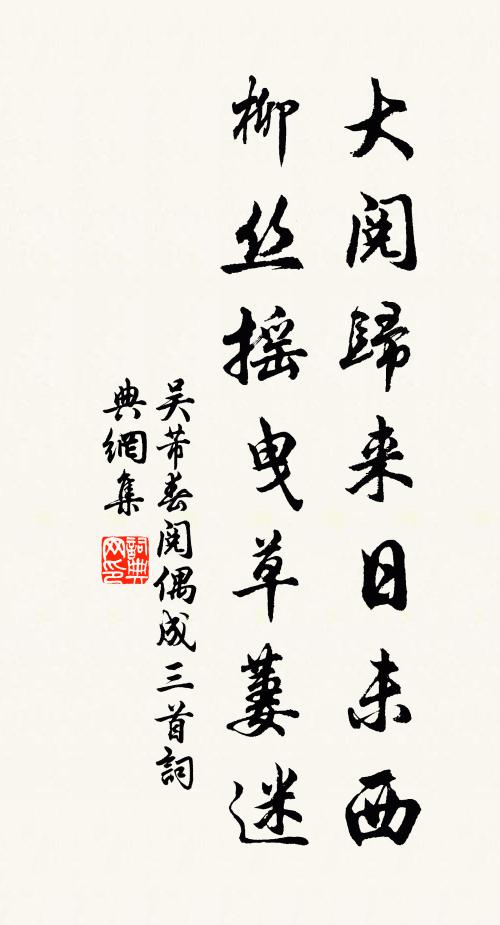 大閱歸来日未西
柳丝摇曳草萋迷
吴芾春閱偶成三首詞
典網集
詞典
网印